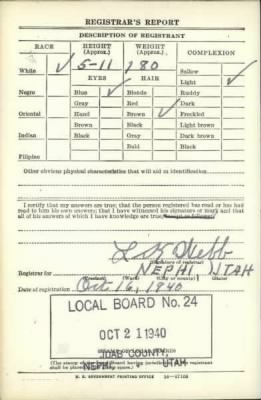 REGISTRAR'S REPORT
DESCRIPTION OF REGISTRANT
RACE HEIGHT (Approx.) WEIGHT (Approx.) COMPLEXION
White ✓ 5-11 180 Sallow
EYES HAIR Light ✓
Negro Blue ✓ Blonde Ruddy
Gray Red Dark
Oriental Hazel Brown ✓ Freckled
Brown Black Light brown
Indian Black Gray Dark brown
Bald Black
Filipino
Other obvious physical characteristics that will aid in identification
I certify that my answers are true; that the person registered has read or has had
read to him his own answers; that I have witnessed his signature or mark and that
all of his answers of which I have knowledge are true, except as follows:
Webb
(Signature of registrar)
Registrar for NEPHI UTAH
(Precinct) (Ward) (City or county) (State)
Date of registration Oct 16, 1940
LOCAL BOARD No. 24
OCT 21 1940
JUAB COUNTY,
NEPHI, UTAH
(The stamp of the Local Board having jurisdiction of the registrant
shall be placed in the above space.)
U. S. GOVERNMENT PRINTING OFFICE 16-17105